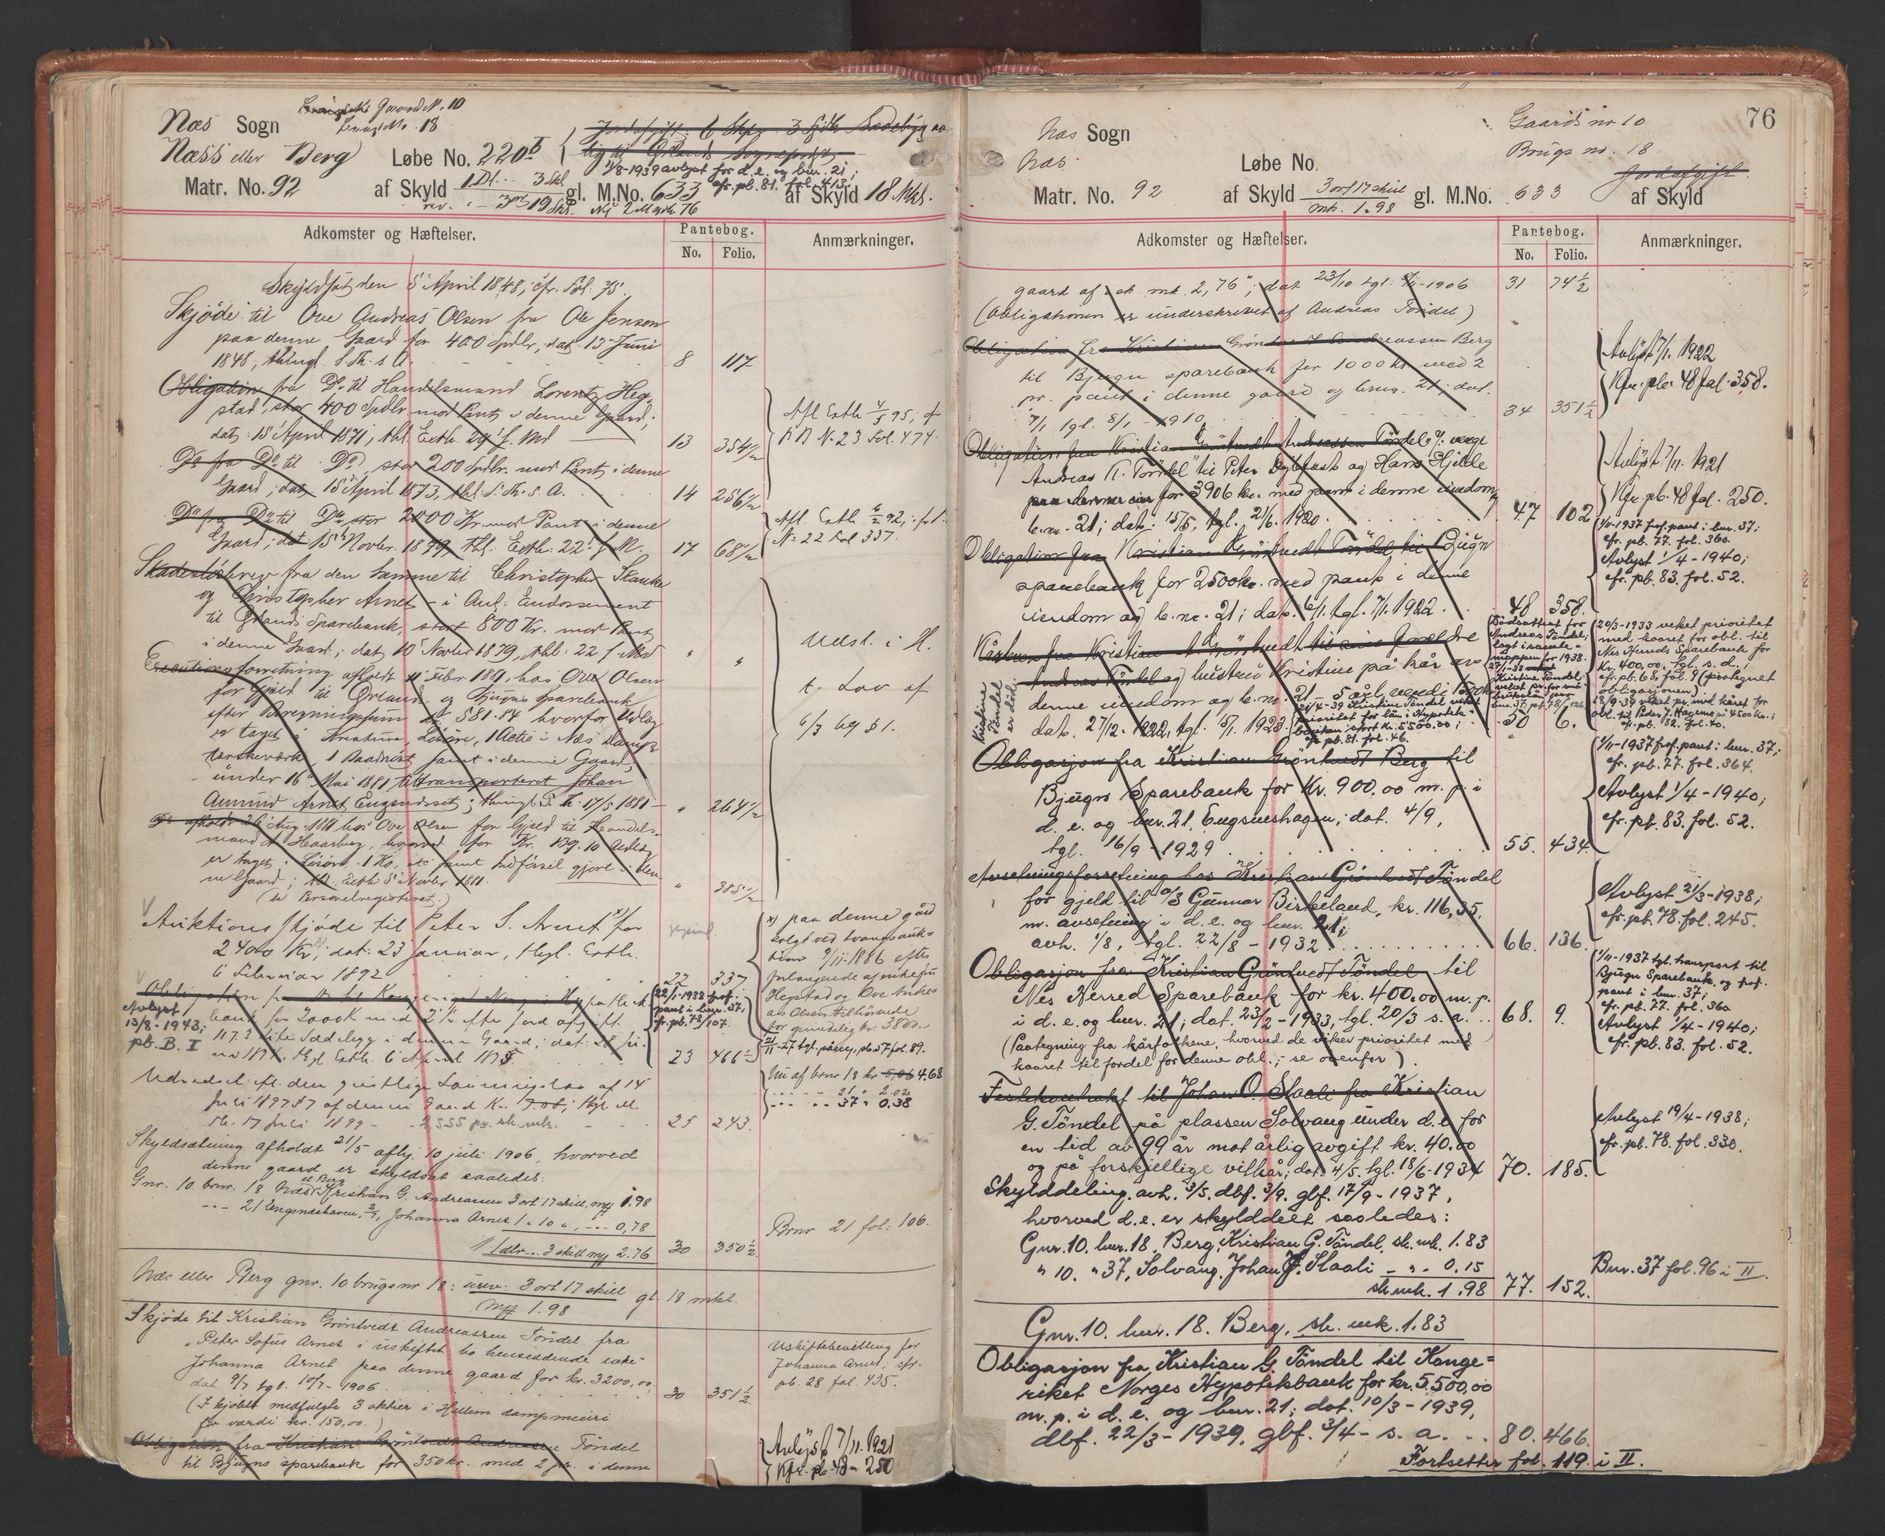 Næs Sogn
Gaards N. 10
Brugs No. 18
Næss eller Berg Løbe No. 220b
1/8-1939 avlyst for d.e. og bnr. 21;
cfr. pb. 81. fol. 413.
Matr. No. 92 af Skyld 1 Dl. - 3 Skl. gl. M.No. 633 af Skyld 18 Mkl.
rev. " - 3 ort 19 Skl. Ny 2 Mark 76
Adkomster og Hæftelser.
Pantebog.
No. Folio.
Anmærkninger.
Skyldsat den 5 April 1848, cfr. Fol. 75.
Skjøde til Ove Andreas Olsen fra Ole Jensen
paa denne Gaard for 400 Spdlr, dat. 13 Juni
1848, thingl. S. Th. s. A. 8 117
Obligation fra Do til Handelsmand Lorentz Heg-
stad, stor 400 Spdlr mod Pant i denne Gaard;
dat. 15 April 1871, thl. Extth. 29 f. Md 13 354 1/2
Afl. Extth. 4/3 95, cf
P.B. N. 23 Fol. 474.
Do fra Do til Do, stor 200 Spdlr. mod Pant i denne
Gaard; dat. 15 April 1873, thl. S. Th. s. A. 14 256 1/2
Do fra Do til Do stor 2000 Kr. mod Pant i denne
Gaard; dat 15de Novbr. 1879, thl. Extth. 22 f. M. 17 68 1/2
N. 22 Fol 337.
Skadesløsbrev fra den samme til Christopher Skanke
og Christopher Arnet - i Anl. Endossement
til Ørlands Sparebank, stort 800 Kr. mod Pant
i denne Gaard; dat 10 Novbr 1879, thl. 22 f. Md " "
Udsl. i H.
t. Lov af
6/3 69 § 1.
Executionsforretning afholdt 11 Febr 1881, hos Ove Olsen
for Gjeld til Ørlands og Bjugns Sparebank
efter Beregning sum Kr 581.84 hvorfor Udlæg
er taget i Kreature, Løsøre, 1 Actie i Næs Damp-
tærskeværk, 1 Baadnøst samt i denne Gaard,
under 16 Mai 1881 transporteret Johan
Amund Arnet Engsnesset; thingl. S. Th. 17/5 1881 " 264 1/2
Do afholdt 26 Aug. 1881 hos Ove Olsen for Gjeld til Handels-
mand A Haarberg, hvorved for Kr. 109.10 Udlæg
er taget i Løsøre, 1 Ko, etc samt Indførsel gjort i den-
ne Gaard; thl. Extth 5 Novbr 1881. " 385 1/2
(se Personalregisteret.)
Auktionsskjøde til Peter S. Arnet x) for
2400 Kr; dat. 23 Januar, thgl. Extth.
6 Februar 1892 22 337
x) paa denne gård
solgt ved tvangsauk-
tion 9/11-1886 efter
forlangende af enkefru
Hegstad og Ove Andre-
as Olsen tilhørende
for gjeldelig kr. 3800.-
Avlyst
13/8-1943;
pb. B. I
22/1-1938 prf.
pant i bnr. 37;
cfr. pb. 78/107.
23 466 1/2
Udvidet ift. den geistlige Løsningslov af 14
Juli 1897 § 7 af denne Gaard Kr.
25 243.
Nu af brnr 18 kr 4.68
37 " 0,38
Skyldsætning afholdt 21/5 aflj. 10 juli 1906, hvorved
denne gaard er skyldsat saaledes:
Gnr. 10 brnr. 18 Næs el. Berg, Kristian G. Andreassen 3 ort 17 skill, my 1.98
" - " 21 Engsneshaven, Johanna Arnet 1 - 10 " , ... 0,78
1 dlr. - 3 skill my 2.76 30 350 1/2
Brnr 21 fol: 106.
Næs eller Berg gnr. 10 brugsnr 18: urev. 3 ort 17 skill gl 18 mkl.
my 1.98
Skjøde til Kristian Grøntvedt Andreassen Tøndel fra
Peter Sofus Arnet i uskiftet bo hensiddende enke
Johanna Arnet paa denne gaard for kr. 3200,00,
dat. 9/7 tgl. 10/7 - 1906 30 351 1/2
Uskiftebevilling for
Johanna Arnet, cfr.
pb. 28 fol. 435.
(I kjøbet medfølger 3 aktier i Hellem dampmeieri
for værdi kr. 150,00.)
Obligation fra Kristian Grøntvedt Andreassen Tøndel
til Bjugns sparebank for 350 kr. med 2 pr. i denne
Avlyst 7/11. 1921
Kfr. pb 48 - 250
76
Næs Sogn
Gaards nr 10
Brugs no. 18
Næs. Løbe No. Jordafgift
Matr. No. 92 af Skyld 3 ort 17 skill gl. M.No. 633 af Skyld
mk. 1.98
Adkomster og Hæftelser.
Pantebog.
No. Folio.
Anmærkninger.
gaard af sk. mk. 2,76; dat 23/10 tgl. 5/11-1906 31 74 1/2
(Obligationen er underskrevet af Andreas Tøndel)
Obligation fra Kristian Grøntvedt Andreassen Berg
til Bjugn sparebank for 1000 kr. med 2
pr. pant i denne gaard og brnr. 21; dat.
7/1 tgl. 8/1 - 1910. 34 351 1/2
Avlyst 7/1. 1922
Kfr. pb. 48 fol. 358.
Obligation fra Kristian Grøntvedt Andreassen Tøndel v. verge
Andreas K. Tøndel til Peter Dybfest og Hans Hjelle
for 3906 kr. med pant i denne eiendom
b.nr. 21; dat. 15/5, tgl. 2/6. 1920. 47 102
Avlyst 7/11. 1921
Kfr. pb. 48 fol. 250.
Obligation fra Kristian Grøntvedt Tøndel til Bjugn
sparebank for 2500 kr. med pant i denne
eiendom og b.nr. 21; dat. 6/1. tgl. 7/1. 1922. 48 358.
1/11-1937 prf. pant i bnr. 37;
cfr. pb. 77. fol. 360.
Avlyst 1/4 - 1940;
cfr. pb. 83. fol. 52.
Kårbrev fra Kristian Grøntvedt til sine foreldre
Andreas Tøndel og hustru Kristine på kår av
denne eiendom og b.nr. 21 - 5 årl. verdi 150 kr.
dat. 27/12. 1922, tgl. 5/1. 1923. 50 6.
Kristine
Tøndel
er død.
24/4-39 Kristine Tøndel veket
prioritet for lån i Hypotek-
banken stort kr. 5500,00;
cfr. pb. 81. fol. 46.
Dødsattest for
Andreas Tøndel,
lagt i sakste-
mappen for 1938.
20/3-1933 veket prioritet
med kåret for obl. til
Nes Herreds Sparebank for
kr. 400,00, tgl. s.d.;
cfr. pb. 68. fol. 9 (påtegnet
obligasjonen)
Obligasjon fra Kristian Grøntvedt Berg til
Bjugns Sparebank for kr. 900,00 m. p. i
d. e. og bnr. 21, Engsneshagen; dat. 4/9,
tgl. 16/9 - 1929 55. 434.
1/11-1937 prf. pant i bnr. 37;
cfr. pb. 77. fol. 364.
Avlyst 1/4 - 1940;
cfr. pb. 83. fol. 52.
Avsetningsforretning hos Kristian Grøntvedt Tøndel
for gjeld til A/S Gunnar Birkeland, kr. 116,35.
m. avsetning i d. e. og bnr. 21;
avh. 1/8, tgl. 22/8 - 1932 66. 136.
Avlyst 21/3-1938;
cfr. pb. 78. fol. 245.
Obligasjon fra Kristian Grøntvedt Tøndel til
Nes Herred Sparebank for kr. 400,00 m. p.
i d. e. og bnr. 21; dat. 23/2 - 1933, tgl. 20/3 s. a. 68. 9.
(Paategning fra kårfolkene, hvorved de viker prioritet med
kaaret til fordel for denne obl.; - se ovenfor).
1/11-1937 tgl. transport til
Bjugn Sparebank, og prf.
pant i bnr. 37;
cfr. pb. 77. fol. 360
Avlyst 1/4 - 1940;
cfr. pb. 83. fol. 52.
Festekontrakt til Johan O. Staali fra Kristian
G. Tøndel på plassen Solvang under d. e. for
en tid av 99 år mot årlig avgift kr. 40.00
og på forskjellige vilkår; dat. 4/5, tgl. 18/6 - 1934 70. 185.
Avlyst 19/4 - 1938;
cfr. pb. 78. fol. 330.
Skylddeling avh. 3/5. dbf. 3/9. gbf. 17/9 - 1937,
hvorved d. e. er skylddelt saaledes:
Gnr. 10. bnr. 18. Berg, Kristian G. Tøndel, sk. mk. 1.83
" 10. " 37, Solvang, Johan Staali - " - 0.15
sk. mk. 1.98 77. 152.
Bnr. 37 fol. 96 i II.
Gnr. 10. bnr. 18. Berg, sk. mk. 1.83
Obligasjon fra Kristian G. Tøndel til Konge=
riket Norges Hypotekbank for kr. 5.500,00
m. p. i d. e. og bnr. 21; dat. 10/3 - 1939,
dbf. 22/3 - 1939. gbf. 3/4 - s. a. 80. 466.
Fortsetter fol. 119. i II.